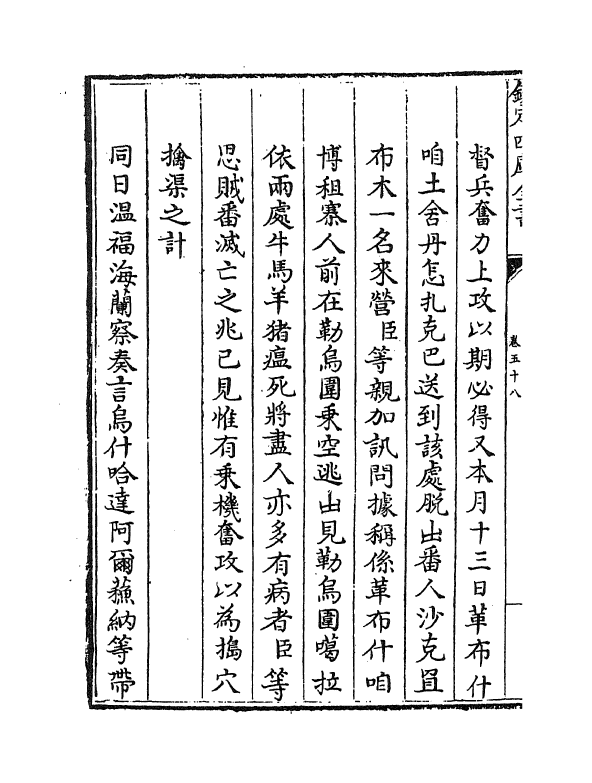 欽定四庫全書
卷五十八
督兵奮力上攻以期必得又本月十三日革布什
咱土舍丹怎扎克巴送到該處脫出番人沙克罝
布木一名來營臣等親加訊問據稱係革布什咱
博租寨人前在勒烏圍乘空逃出見勒烏圍噶拉
依兩處牛馬羊猪瘟死將盡人亦多有病者臣等
思賊番滅亡之兆已見惟有乗機奮攻以為搗穴
擒渠之計
同日温福海蘭察奏言烏什哈達阿爾蘓納等帶